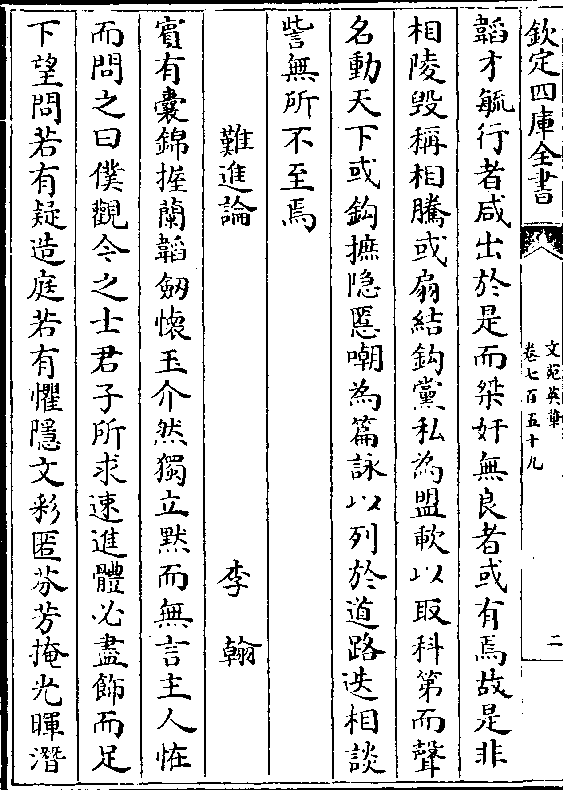 欽定四庫全書
文苑英華
卷七百五十九
二
韜才毓行者咸出於是而桀奸無良者或有焉故是非
相陵毀稱相騰或扇結鈎黨私為盟歃以取科第而聲
名動天下或鈎摭隱慝嘲為篇詠以列於道路迭相談
訾無所不至焉
難進論
李翰
賓有囊錦握蘭韜劒懷玉介然獨立默而無言主人恠
而問之曰僕觀今之士君子所求速進體必盡飾而足
下望問若有疑造庭若有懼隱文彩匿芬芳掩光暉潛